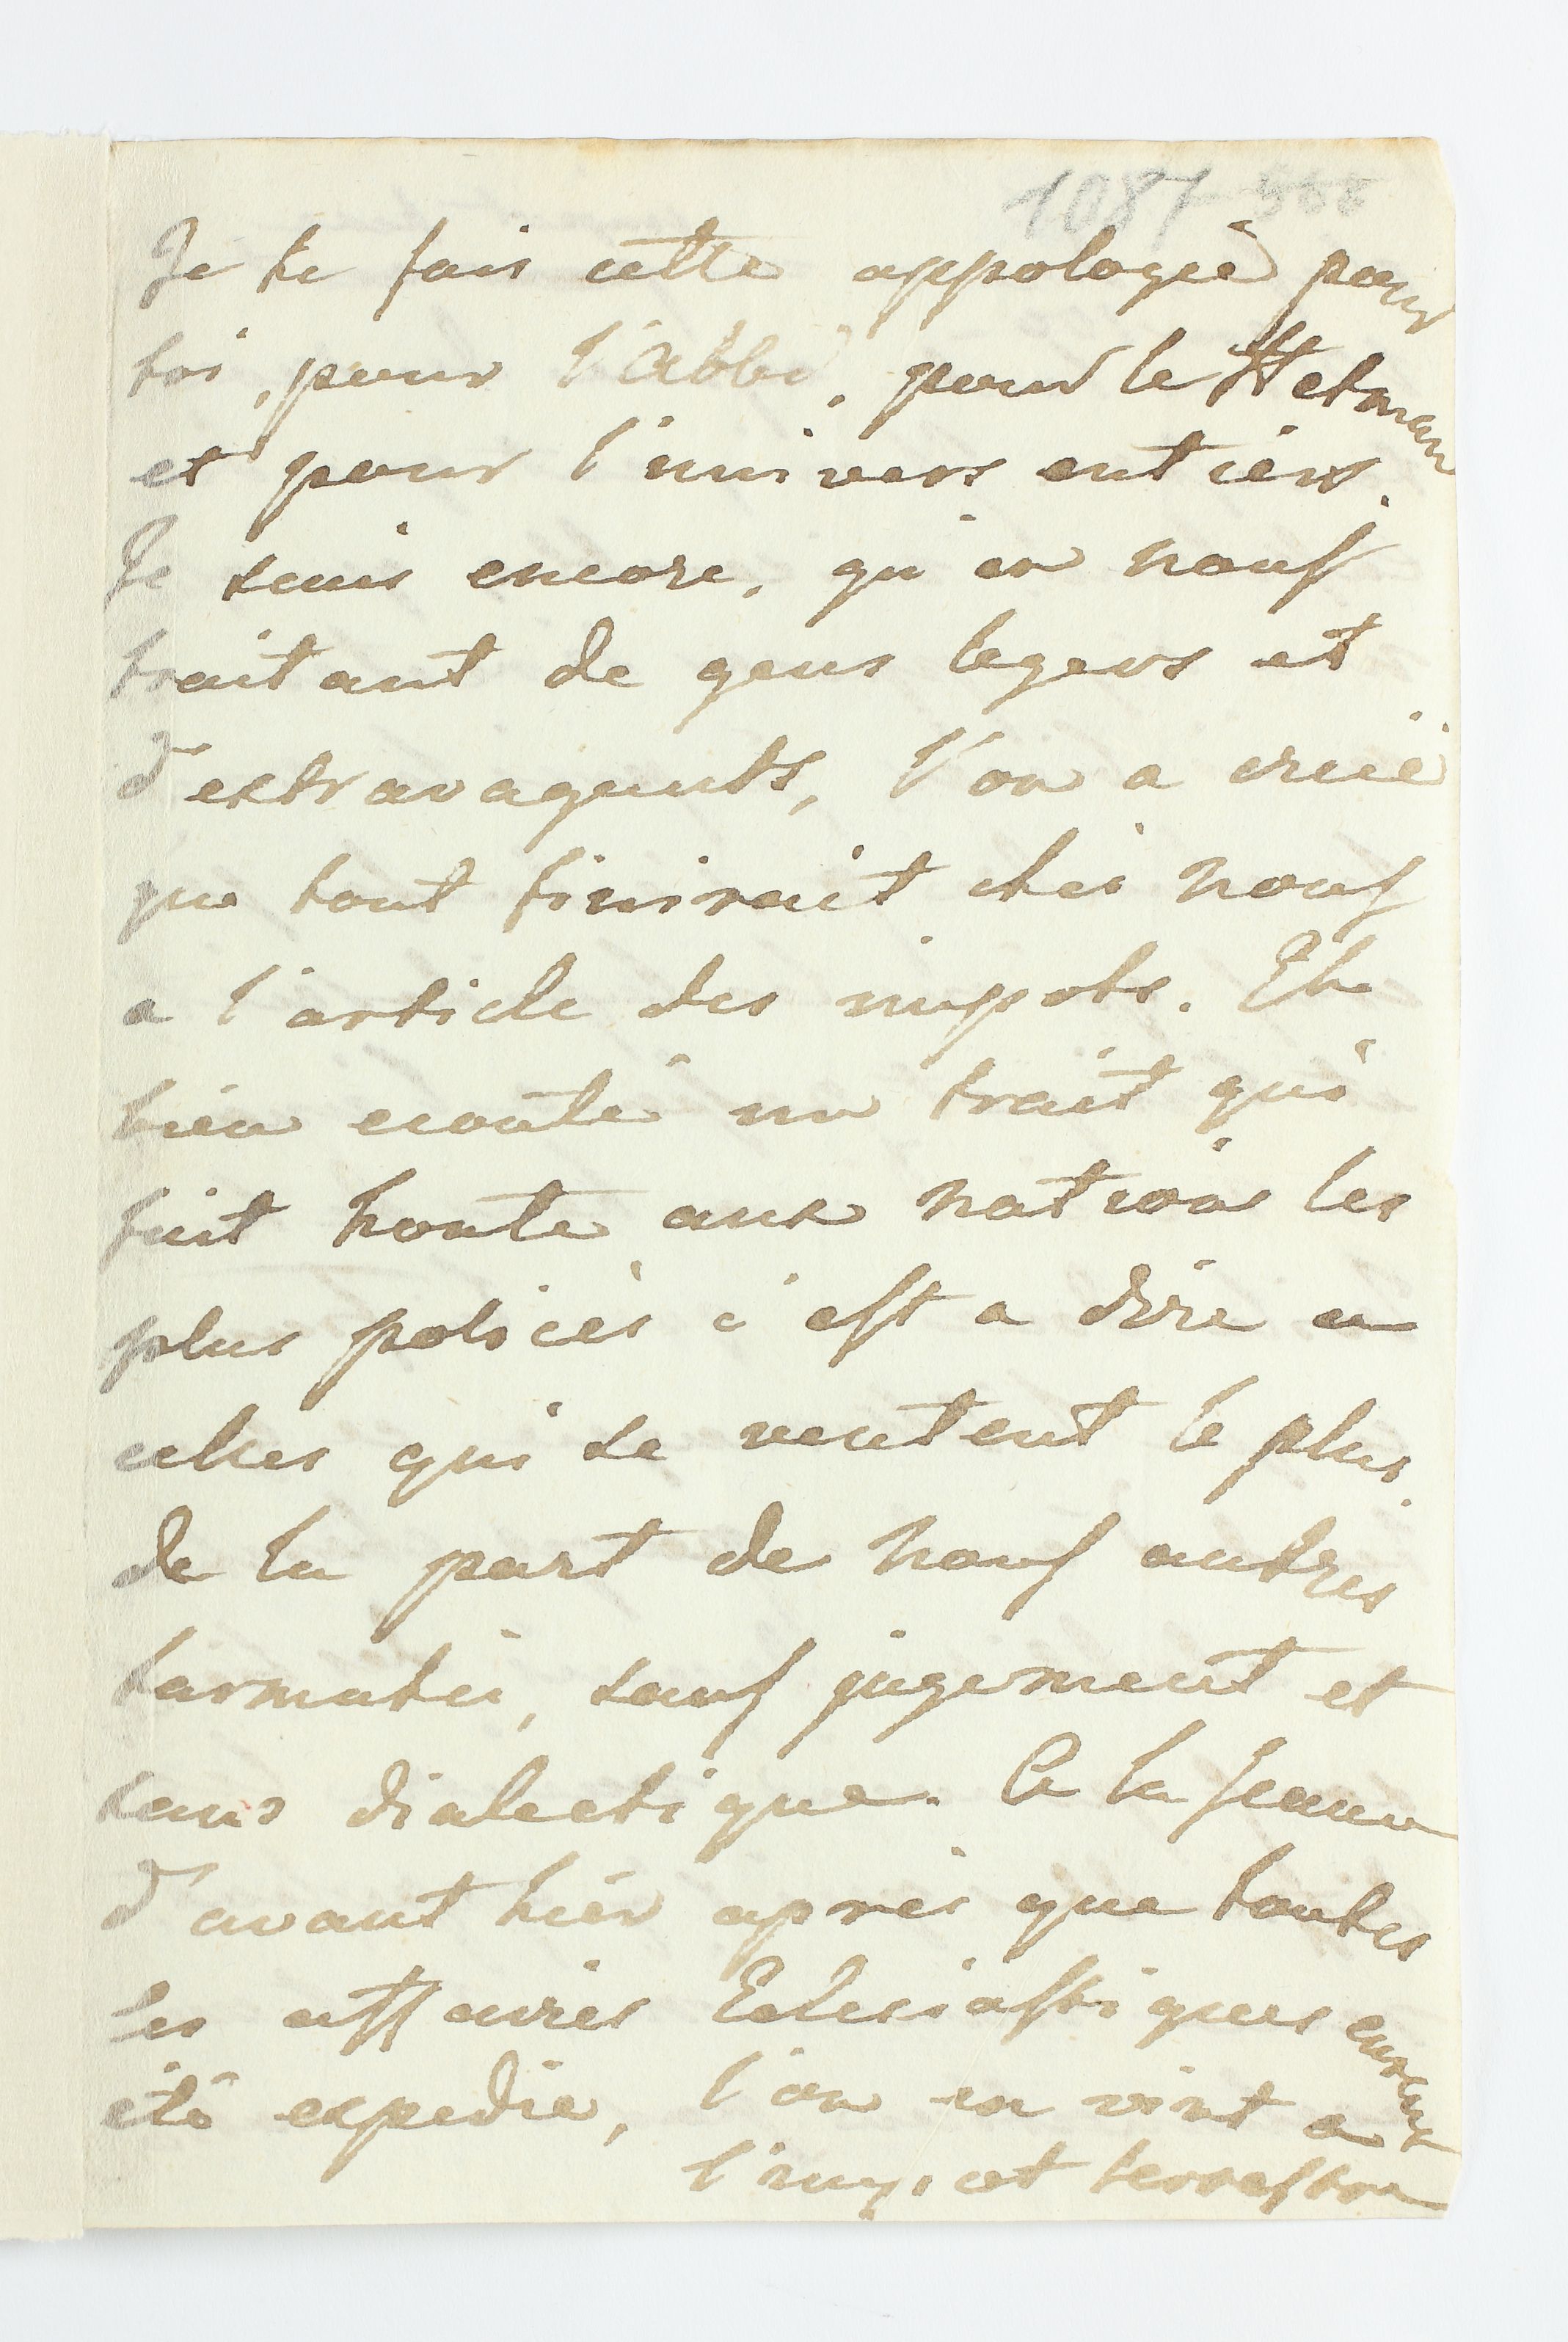 1087
Je te fais cette appologie pour
toi, pour l'Abbé, pour le Hetman
et pour l'univers entier.
Je scais encore, qu'en nous
traitant de gens legers et
d'extravagants, l'on a crié
que tout finirait chéz nous
a l'article des impots. Eh
bien ecoute un trait qui
fait honte aux nations les
plus policés c'est a dire a
celles qui se ventent le plus.
de la part de nous autres
sarmates, sans jugement et
sans dialectique. A la seance
d'avant hièr aprés que toutes
les affaires Eclesiastiques eurent
été expedie, l'on en vint a
l'impot terrestre